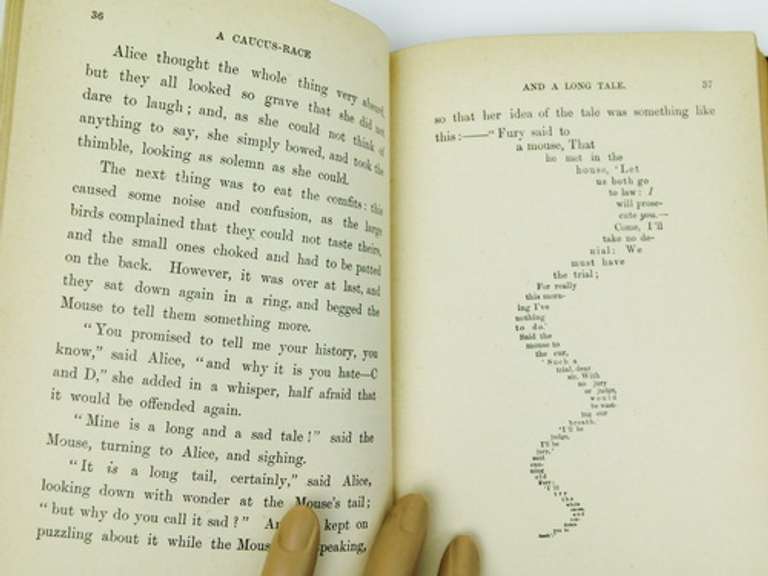 36
A CAUCUS-RACE
Alice thought the whole thing very absurd,
but they all looked so grave that she did not
dare to laugh; and, as she could not think of
anything to say, she simply bowed, and took the
thimble, looking as solemn as she could.
The next thing was to eat the comfits: this
caused some noise and confusion, as the large
birds complained that they could not taste theirs,
and the small ones choked and had to be patted
on the back. However, it was over at last, and
they sat down again in a ring, and begged the
Mouse to tell them something more.
"You promised to tell me your history, you
know," said Alice, "and why it is you hate—C
and D," she added in a whisper, half afraid that
it would be offended again.
"Mine is a long and a sad tale!" said the
Mouse, turning to Alice, and sighing.
"It is a long tail, certainly," said Alice,
looking down with wonder at the Mouse's tail;
"but why do you call it sad?" kept on
puzzling about it while the Mous speaking,
AND A LONG TALE.
37
so that her idea of the tale was something like
this:——"Fury said to
a mouse, That
he met in the
house, 'Let
us both go
to law: I
will prose-
cute you.—
Come, I'll
take no de-
nial: We
must have
the trial;
For really
this morn-
ing I've
nothing
to do.'
Said the
mouse to
the cur,
'Such a
trial, dear
sir, With
no jury
or judge,
would
be wast-
ing our
breath.'
'I'll be
judge,
I'll be
jury,'
said
cun-
ning
old
Fury:
'I'll
try
the
whole
cause,
and
con-
demn
you to
death.'"